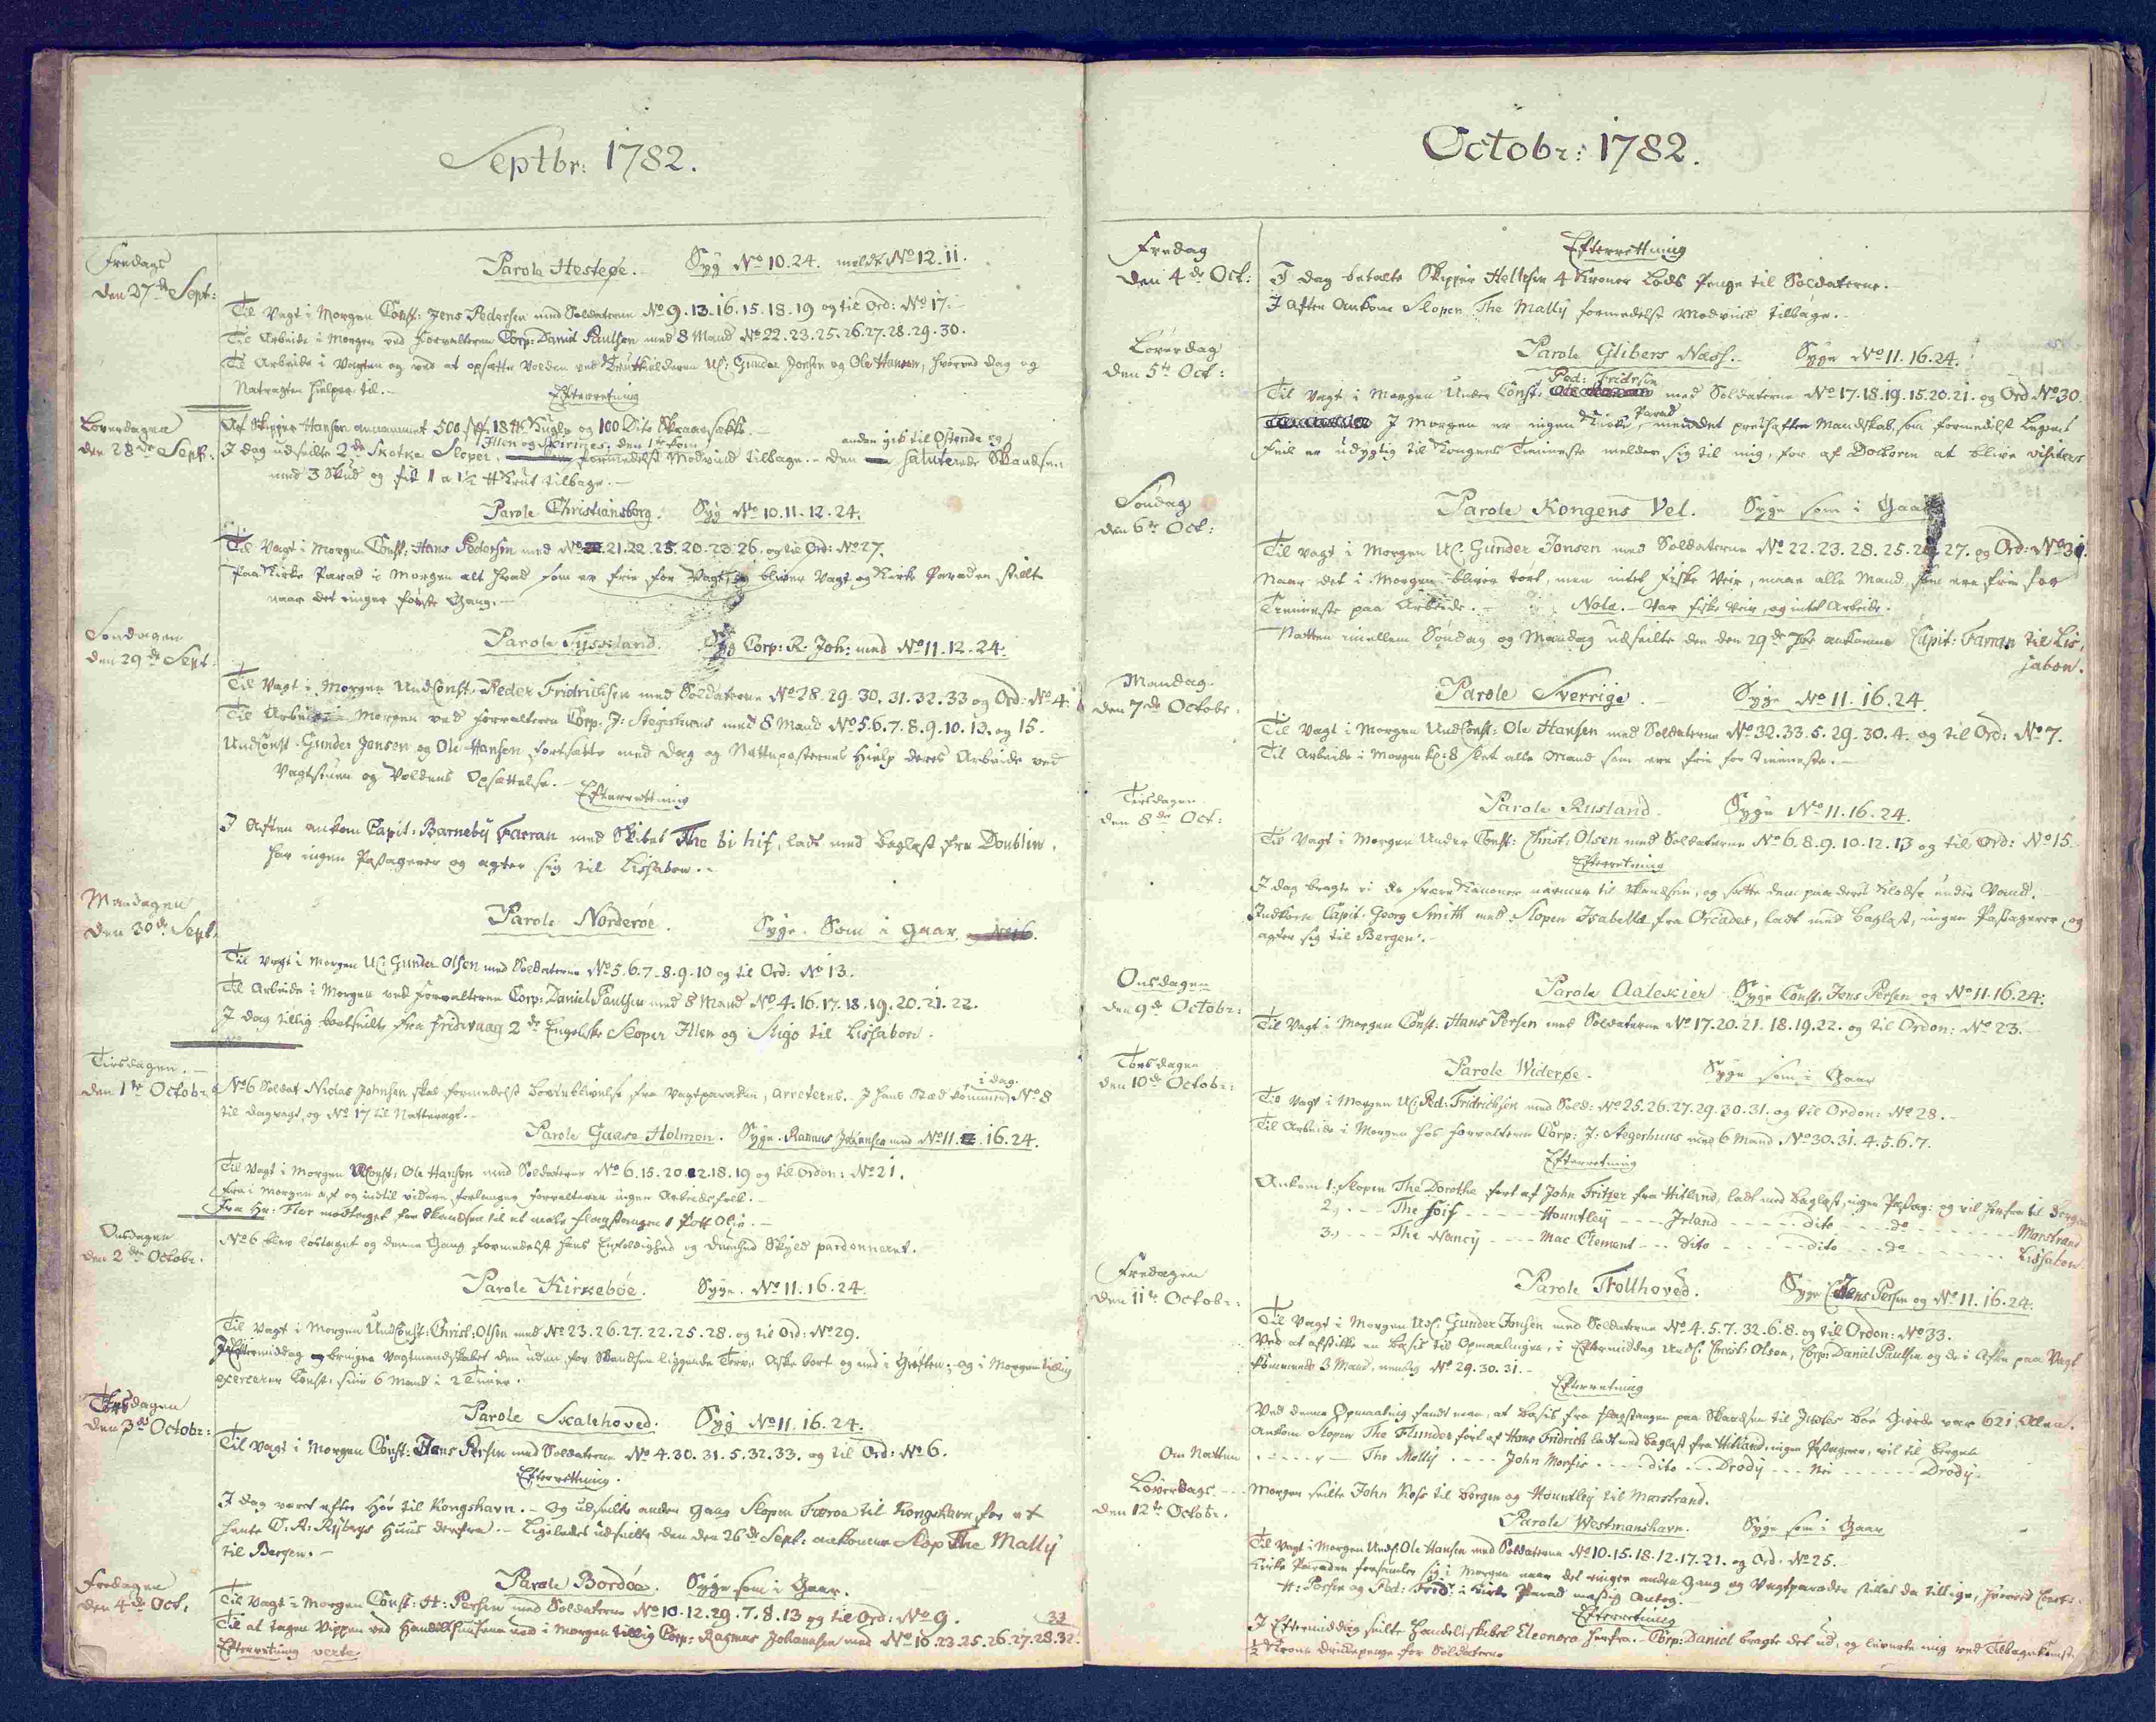 Septbr: 1782.
Fredags
den 27de Sept:
Parole Hestøe. Syg No 10.24. meldt No 12.11.
Til Vagt i Morgen Const: Jens Pedersen med Soldaterne No 9.13.16.15.18.19 og til Ord: No 17.
Til Arbeide i Morgen ved Forvalteren Corp: Daniel Paulsen med 8 Mand No 22.23.25.26.27.28.29.30.
Til Arbeide i Vagten og ved at opsætte Volden ved Krutkielderen UC: Gunder Jonsen og Ole Hansen, hvorved Dag og
Natvagten hielper til.
Efterretning
Af Skipper Hansen annammet 500 18 ℔ Kugle og 100 Dito
Løverdagen
den 28de Sept:
I dag udseilte 2de Skotske Sloper, Illen og den 1te kom formedelst Modvind tilbage. den anden gik til Ostende og saluterede Skandsen
med 3 Skud og fik 1 a 1½ ℔ Krut tilbage.
Parole Christiansborg. Syg No 10.11.12.24.
Til Vagt i Morgen Const: Hans Pedersen med No 21.22.25.20.23.26. og til Ord: No 27.
Paa Kirke Parad i Morgen alt hvad som er frie for Vagt, og bliver Vagt og Kirke Paraden stillt
naar det ringer første Gang.
Søndagen
den 29de Sept
Parole Tyskland. Syg Corp: R. Joh: med No 11.12.24.
Til Vagt i Morgen UndConst: Peder Fridrichsen med Soldaterne No 28.29.30.31.32.33 og Ord: No 4.
Til Arbeide i Morgen ved Forvalteren Corp: J: Stegerhuus med 8 Mand No 5.6.7.8.9.10.13. og 15.
UndConst. Gunder Jonsen og Ole Hansen fortsatte med Dag og Nattposternes Hielp deres Arbeide ved
Vagtstuen og Voldens Opsættelse.
Efterretning
I Aften ankom Capit: Barneby Farran med Skibet The bi hif, ladt med Baglast fra Doublin.
har ingen Passagerer og agter sig til Lissabon.
Mandagen
den 30de Sept.
Parole Norderøe. Syge. Som i Gaar.
Til Vagt i Morgen UC: Gunder Olsen med Soldaterne No 5.6.7.8.9.10 og til Ord: No 13.
Til Arbeide i Morgen ved Forvalteren Corp: Daniel Paulsen med 8 Mand No 4.16.17.18.19.20.21.22.
I dag tillig bortseilte fra Fridrvaag 2de Engelske Sloper Illen og til Lissabon.
Tirsdagen.
den 1te Octobr.
No 6 Soldat Niclas Johnsen skal formedelst Borteblivelse fra Vagtparaden, arreteres. I hans Sted kommer i dag No 8
til dagvagt, og No 17 til Nattevagt.
Parole Gaase Holmen. Syge. Rasmus Johansen med No 11. 16.24.
Til Vagt i Morgen UConst: Ole Hansen med Soldaterne No 6.15.20.22.18.19 og til Ordon: No 21.
Fra i Morgen af og indtil videre forlanger Forvalteren ingen Arbeidsfolk.
Fra Hr: Flor modtaget for Skandsen til at male Flagstangen 1 Pott Olie.
Onsdagen
den 2den Octobr.
No 6 blev løsladt og denne Gang formedelst hans Enfoldighed og dumhed Skyld pardonneret.
Parole Kirkebøe. Syge. No 11.16.24.
Til Vagt i Morgen UndConst: Christ: Olsen med No 23.26.27.22.25.28. og til Ord: No 29.
I Eftermiddag bringer Vagtmandskabet den uden for Skandsen liggende Tørv Aske bort og ned i Grøften, og i Morgen tidlig
exercerer Const: sine 6 Mand i 2 Timer.
Torsdagen
den 3de Octobr:
Parole Skalehoved. Syg No 11.16.24.
Til Vagt i Morgen Const: Hans Persen med Soldaterne No 4.30.31.5.32.33. og til Ord: No 6.
Efterretning.
I dag været efter Høe til Kongshavn. Og udseilte anden Gang Slopen Færøe til Kongshavn for at
hente C. A. Rybergs Huus derfra. Ligeledes udseilte den den 26de Sept: ankomne Slop The Mally
til Bergen.
Fredagen
den 4de Oct.
Parole Bordøe. Syge som i Gaar.
Til Vagt i Morgen Const: H: Persen med Soldaterne No 10.12.29.7.8.13 og til Ord: No 9.
Til at tagen Vippen ved Handelshusene ned i Morgen tillig Corp: Rasmus Johansen med No 16.23.25.26.27.28.32. 33
Efterretning verte
Octobr: 1782.
Fredag
den 4de Oct:
Efterretning
I dag betalte Skipper Hellesen 4 Kroner Lods Penge til Soldaterne.
I Aften Ankom Slopen The Mally formedelst Modvind tilbage.
Løverdag
den 5te Oct:
Parole Glibers Næss. Syge No 11.16.24.
Til Vagt i Morgen Under Const: Ped: Fridrsen med Soldaterne No 17.18.19.15.20.21. og Ord No 30.
I Morgen er ingen Kirke Parad, men det Mandskab, som formedelst Legems
Feil er udygtig til Kongens Tienneste melder sig til mig, for af Doctoren at blive visiteret
Søndag
den 6te Oct:
Parole Kongens Vel. Syge som i Gaar
Til Vagt i Morgen UC: Gunder Jonsen med Soldaterne No 22.23.28.25. 27. og Ord: No 31.
Naar det i Morgen bliver tørt, men intet Fiske Veir, naar alle Mand, som ere frie for
Tienneste paa Arbeide. Nota. Var fiske Veir, og intet Arbeide.
Natten imellem Søndag og Mandag udseilte den den 29de 7br ankomne Capit: Farran til Lis,
sabon.
Mandag.
den 7de Octobr.
Parole Sverrige. Syge No 11.16.24.
Til Vagt i Morgen UndConst: Ole Hansen med Soldaterne No 32.33.5.29.30.4. og til Ord: No 7.
Til Arbeide i Morgen kl: 8 slet alle Mand som ere frie for Tienneste.
Tirsdagen
den 8de Oct:
Parole Rusland. Syge No 11.16.24.
Til Vagt i Morgen Under Const: Christ. Olsen med Soldaterne No 6.8.9.10.12.13 og til Ord: No 15.
Efterretning
I dag bragte vi de svære Kanoner nærmer til Skandsen, og satte dem paa deres Klodse under Vand.
Indkom Capit. Georg Smith med Slopen Isabella fra Orcades, ladt med Baglast, ingen Passagerer, og
agter sig til Bergen.
Onsdagen
den 9de Octobr:
Parole Aaleskier Syge Const: Jens Persen og No 11.16.24.
Til Vagt i Morgen Const: Hans Persen med Soldaterne No 17.20.21.18.19.22. og til Ordon: No 23.
Torsdagen
den 10de Octobr:
Parole Widerøe. Syge som i Gaar
Til Vagt i Morgen UC: Ped: Fridrichsen med Sold: No 25.26.27.29.30.31. og til Ordon: No 28.
Til Arbeide i Morgen hos Forvalteren Corp: J: Stegerhuus med 6 Mand No 30.31.4.5.6.7.
Efterretning
Ankom 1: Slopen The Dorothe ført af John Fritzer fra Hitland, ladt med Baglast, ingen Passag: og vil herfra til Bergen
2, - - - The foif - - - Hountley - - - Irland - - - dito - - - do - - - Marstrand
3, - - - The Nancy - - - Mac Clement - - - Dito - - - dito - - - do - - - Lissabon.
Fredagen
den 11te Octobr:
Parole Trollhoved. Syge C. Jens Persen og No 11.16.24.
Til Vagt i Morgen UdC: Gunder Jonsen med Soldaterne No 4.5.7.32.6.8. og til Ordon: No 33.
Ved at afstikke en Basis til Opmaalingen, i Eftermiddag UndC: Christ: Olsen, Corp: Daniel Paulsen og de i Aften paa Vagt
kommende 3 Mand, nemlig No 29.30.31.
Efterretning
Ved denne Opmaaling fandt man, at Basis fra Flagstangen paa Skandsen til bøe Gierde var 621 Allen.
Ankom Slopen The Flunder ført af Hans Fridrich ladt med Baglast fra Hitland, ingen Passagerer, vil til Bergen
Om Natten - - - The Molly - - - John Morfis - - - dito - - Drody - - - Nei - - - Drody.
Løverdags
den 12te Octobr.
Morgen seilte John Ross til Bergen og Hountley til Marstrand.
Parole Westmanshavn. Syge som i Gaar
Til Vagt i Morgen UndC: Ole Hansen med Soldaterne No 10.15.18.12.17.21. og Ord. No 25.
Kirke Paraden forsamler sig i Morgen naar det ringer anden Gang og Vagtparaden stilles da tillige, hvorved Const:
H: Persen og Ped: Fridr: i Kirke Parad mæssig Antog.
Efterretning
I Eftermiddag seilte Handels skibet Eleonora herfra. Corp: Daniel bragte det ud, og leverte mig ved Tilbagekomsten
½ Krone Drikkepenge for Soldaterne